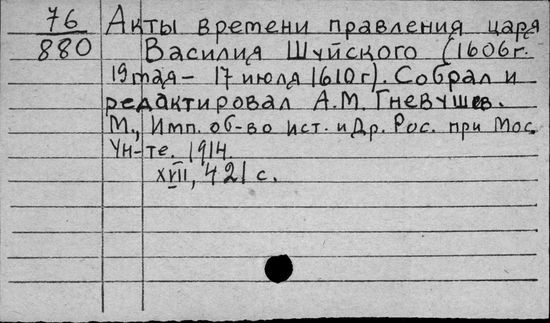 76 Акты времени правления царя
880 Василия Шуйского (1606г.
19 мая – 17 июля 1610г). Собрал и
редактировал А.М. Гневушев.
М., Имп. об-во ист. и Др. Рос. при Мос.
Ун-те. 1914.
XVII, 421 с.